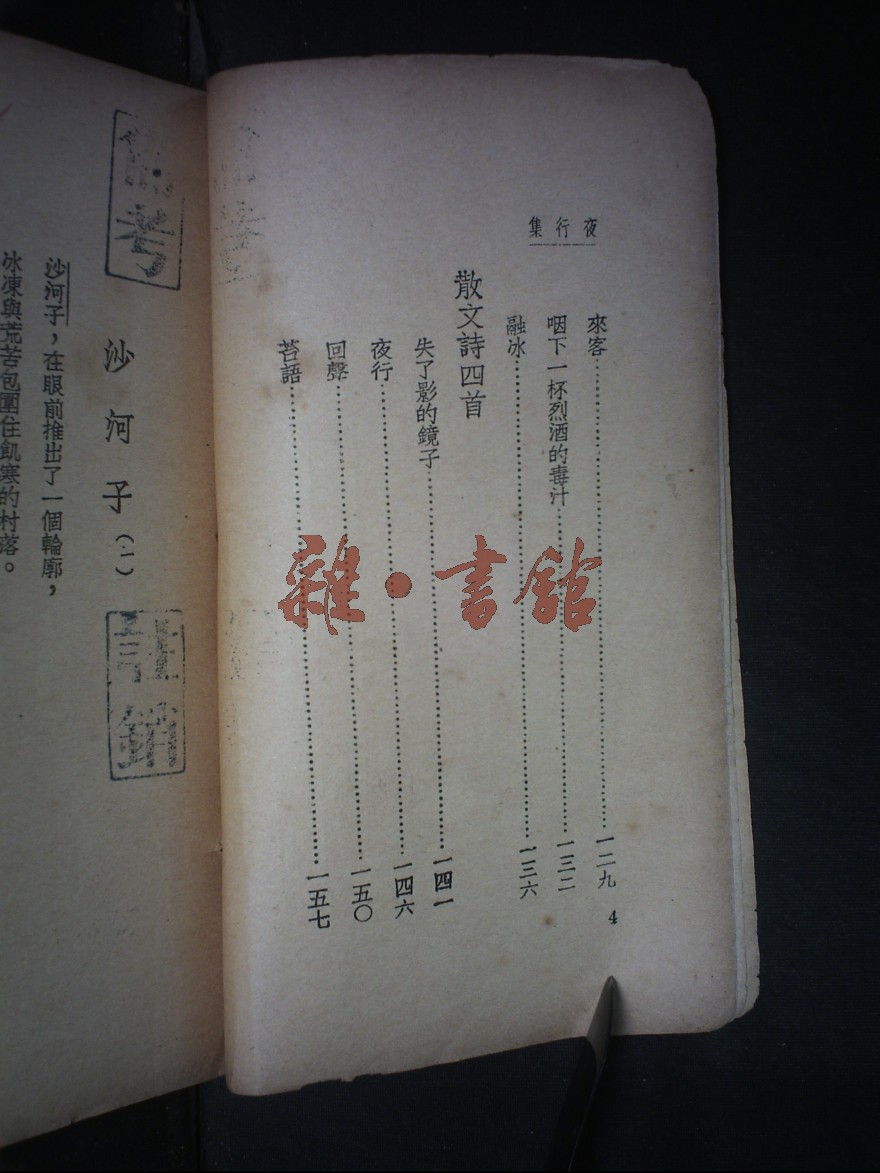 夜行集
來客……一二九
咽下一杯烈酒的毒汁……一三二
融冰……一三六
散文詩四首
失了影的鏡子……一四一
夜行……一四六
回聲……一五〇
苔語……一五七
4
雜・書館
備考
沙河子（一）
註銷
沙河子，在眼前推出了一個輪廓，
冰凍與荒苦包圍住飢寒的村落。